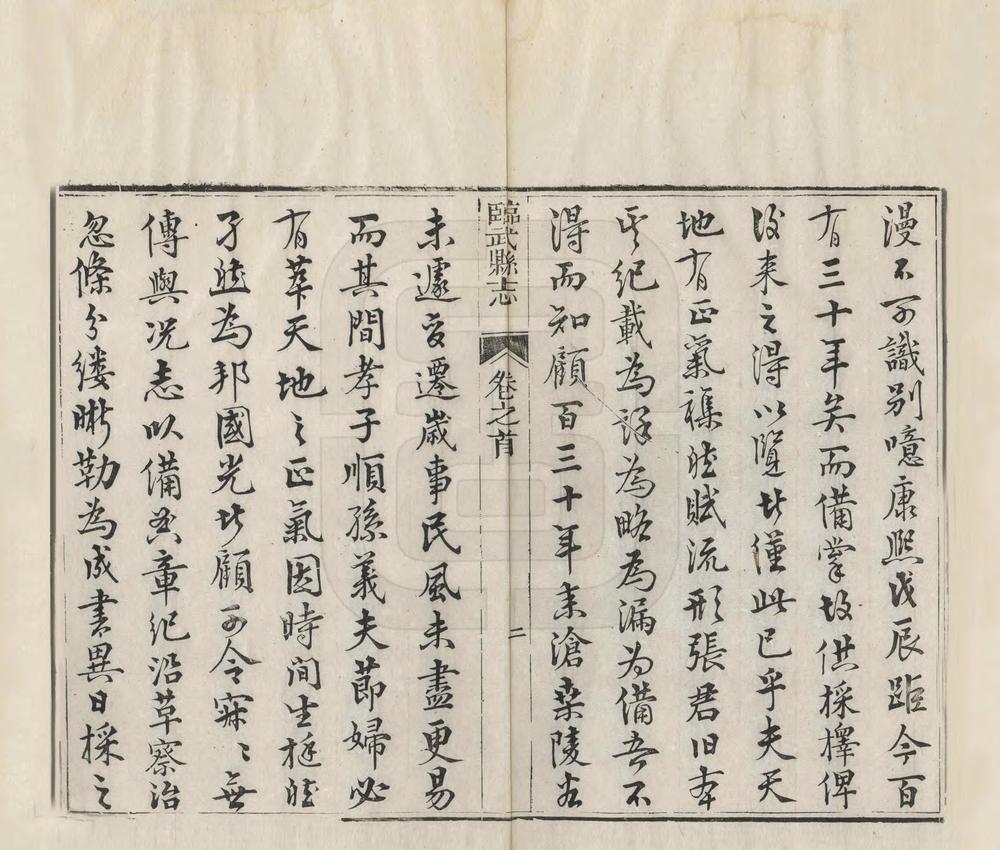 漫不可識别噫康熙戊辰距今百
有三十年矣而備掌故供採擇俾
後来之得以覽者僅此已乎夫天
地有正氣襍然賦流形張君旧本
其纪載為詳為略為漏為備吾不
得而知顧百三十年来滄桑陵谷
臨武縣志
卷之首
二
未遽变遷歲事民風未盡更易
而其間孝子順孫義夫節婦必
有萃天地之正氣因時間生挺然
孑然為邦國光者顧可令寂〻無
傳與况志以備典章纪沿革察治
忽條分縷晰勒為成書異日採之